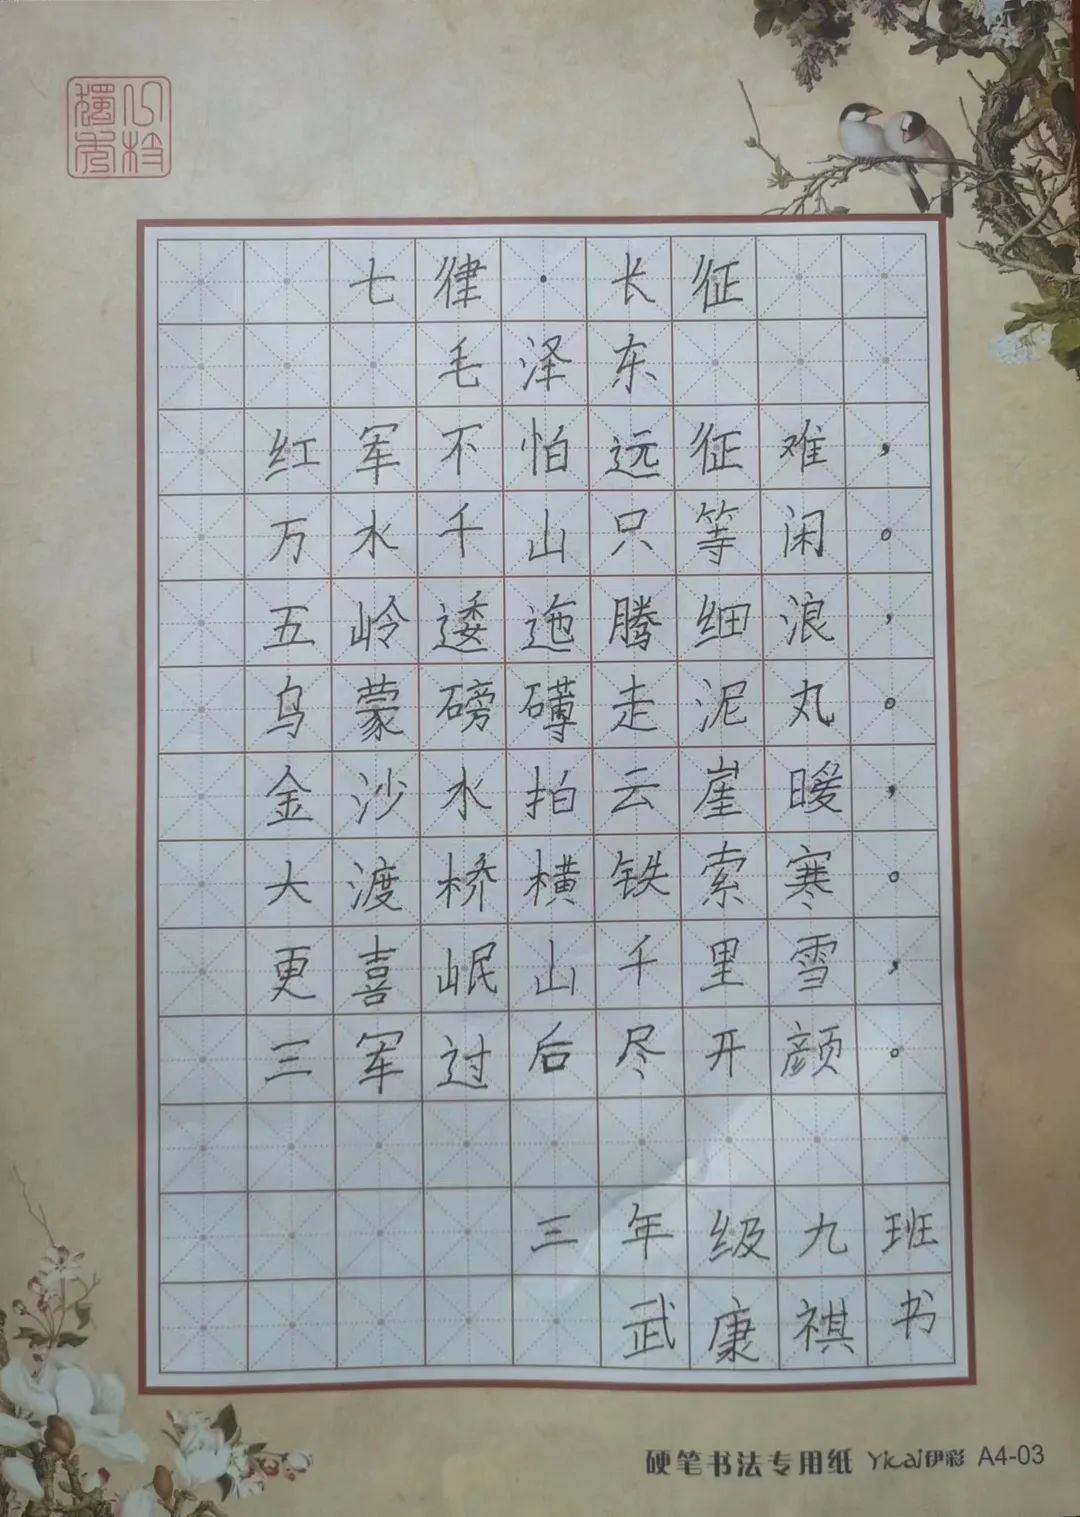 七律·长征
毛泽东
红军不怕远征难，
万水千山只等闲。
五岭逶迤腾细浪，
乌蒙磅礴走泥丸。
金沙水拍云崖暖，
大渡桥横铁索寒。
更喜岷山千里雪，
三军过后尽开颜。
三年级九班
武康祺书
硬笔书法专用纸 Yicai伊彩 A4-03